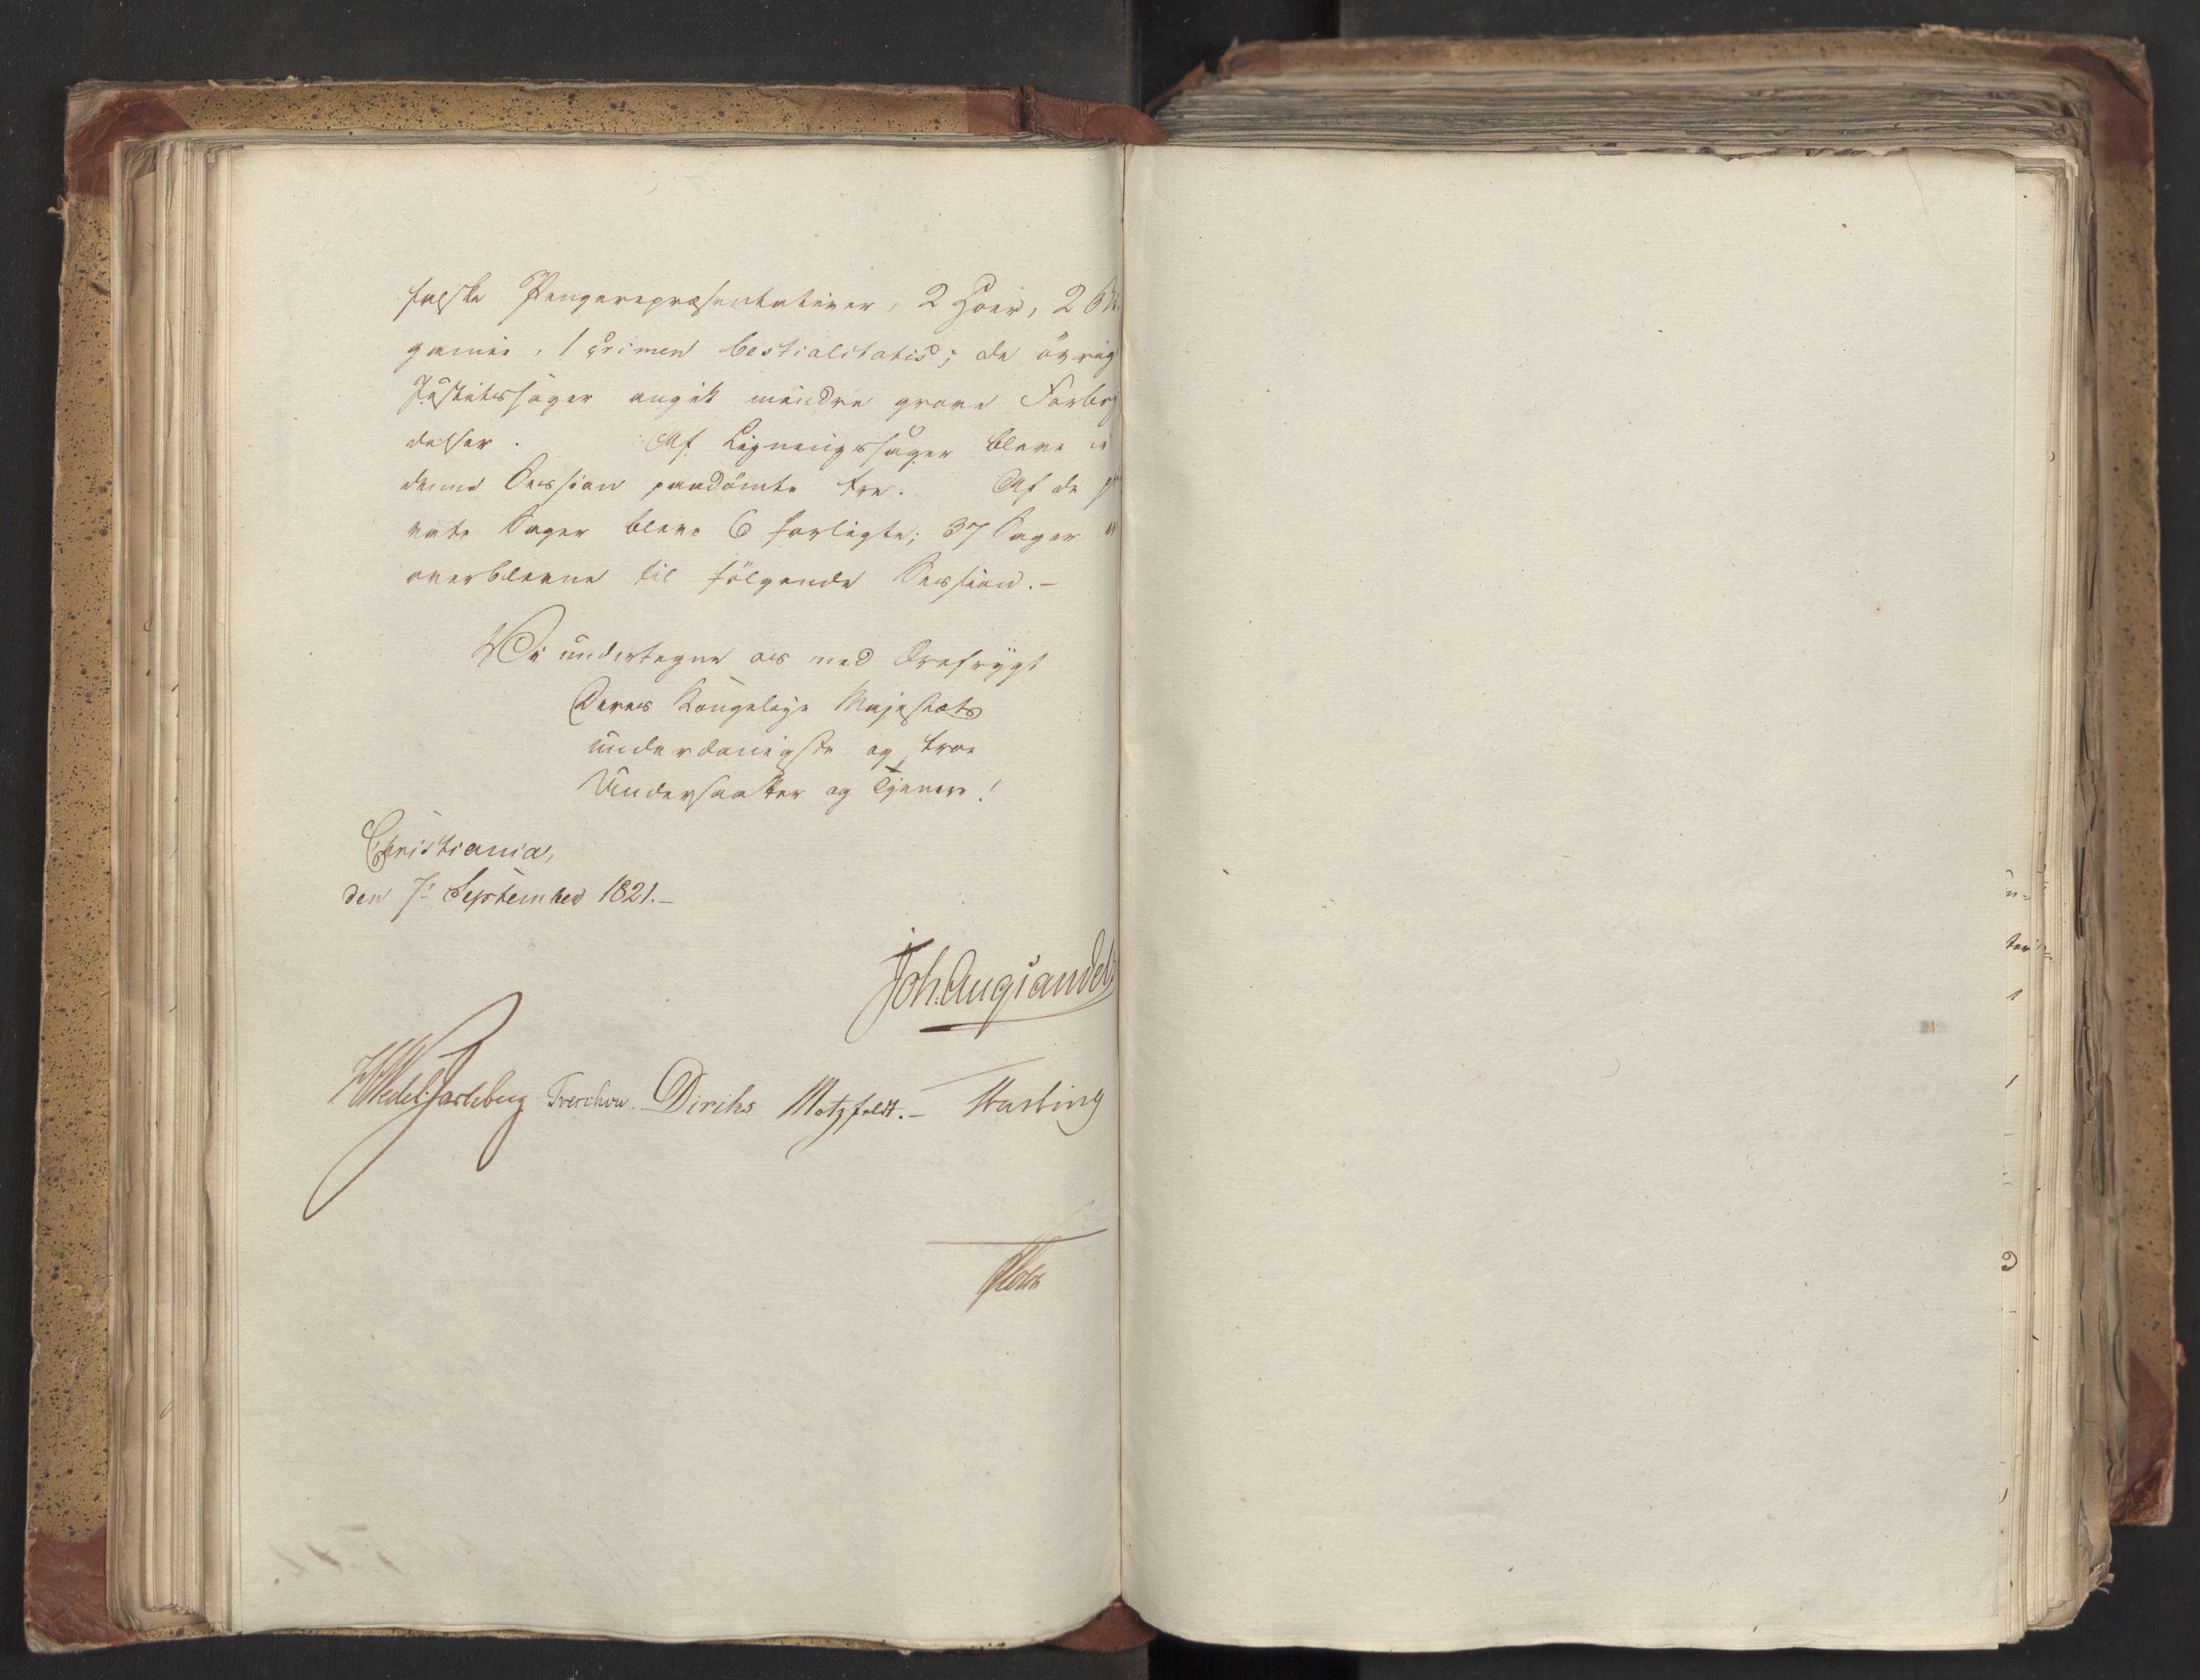 falske Pengerepræsentativer, 2 Hoer, 2 Bi
gamie, 1 crimen bestialitatis; de övrig
Justitssager angik mindre grove Forbry
delser. Af Ligningssager bleve i
denne Session paadömte tre. Af de pri
vate Sager bleve 6 forligte; 37 Sager
overblevne til fölgende Session.-
Vi undertegne os med Ærefrygt
Deres Kongelige Majestæts
underdanigste og troe
Undersaatter og Tjenere!
Christiania,
den 7: September 1821.-
Joh. Aug Sandels
HWedel Jarlsberg Treschow. Diriks Motzfeldt.- Fasting
Holst